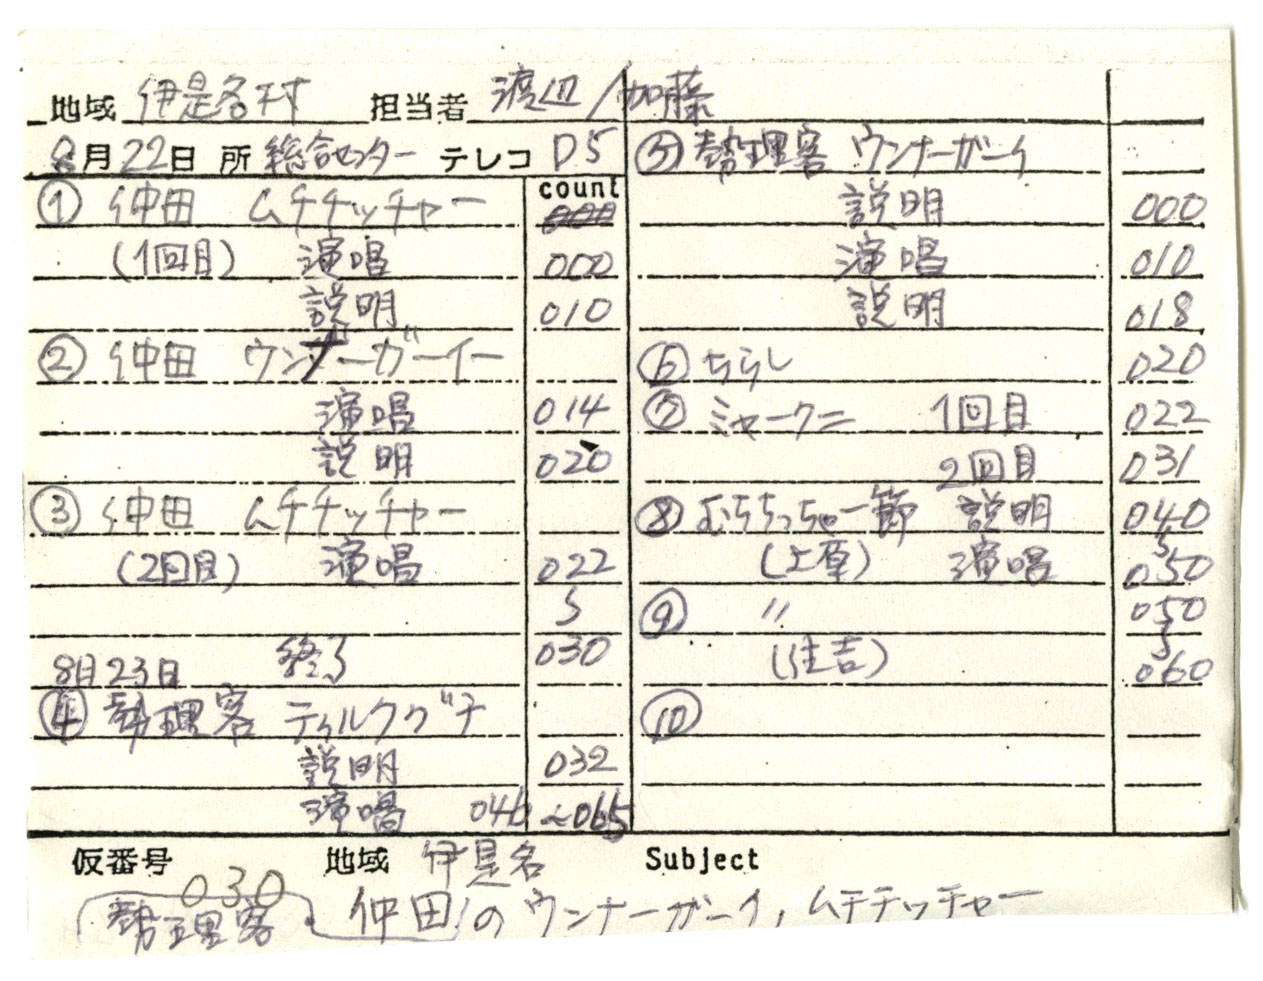 地域 伊是名村 担当者 渡辺/加藤
8月22日 所 総合センター テレコ D5
count
① 仲田 ムチチッチャー
(1回目) 演唱 000
説明 010
② 仲田 ウンナーガーイー
演唱 014
説明 020
③ 仲田 ムチチッチャー
(2回目) 演唱 022
〜
8月23日 終了 030
④ 勢理客 ティルクグチ
説明 032
演唱 046〜065
⑤ 勢理客 ウンナーガーイ
説明 000
演唱 010
説明 018
⑥ ちらし 020
⑦ ミャークニー 1回目 022
2回目 031
⑧ むちちっちゃー節 説明 040
〜
(上原) 演唱 050
⑨ 〃 050
〜
(住吉) 060
⑩
仮番号 地域 伊是名 Subject
030
勢理客 仲田の ウンナーガーイ, ムチチッチャー